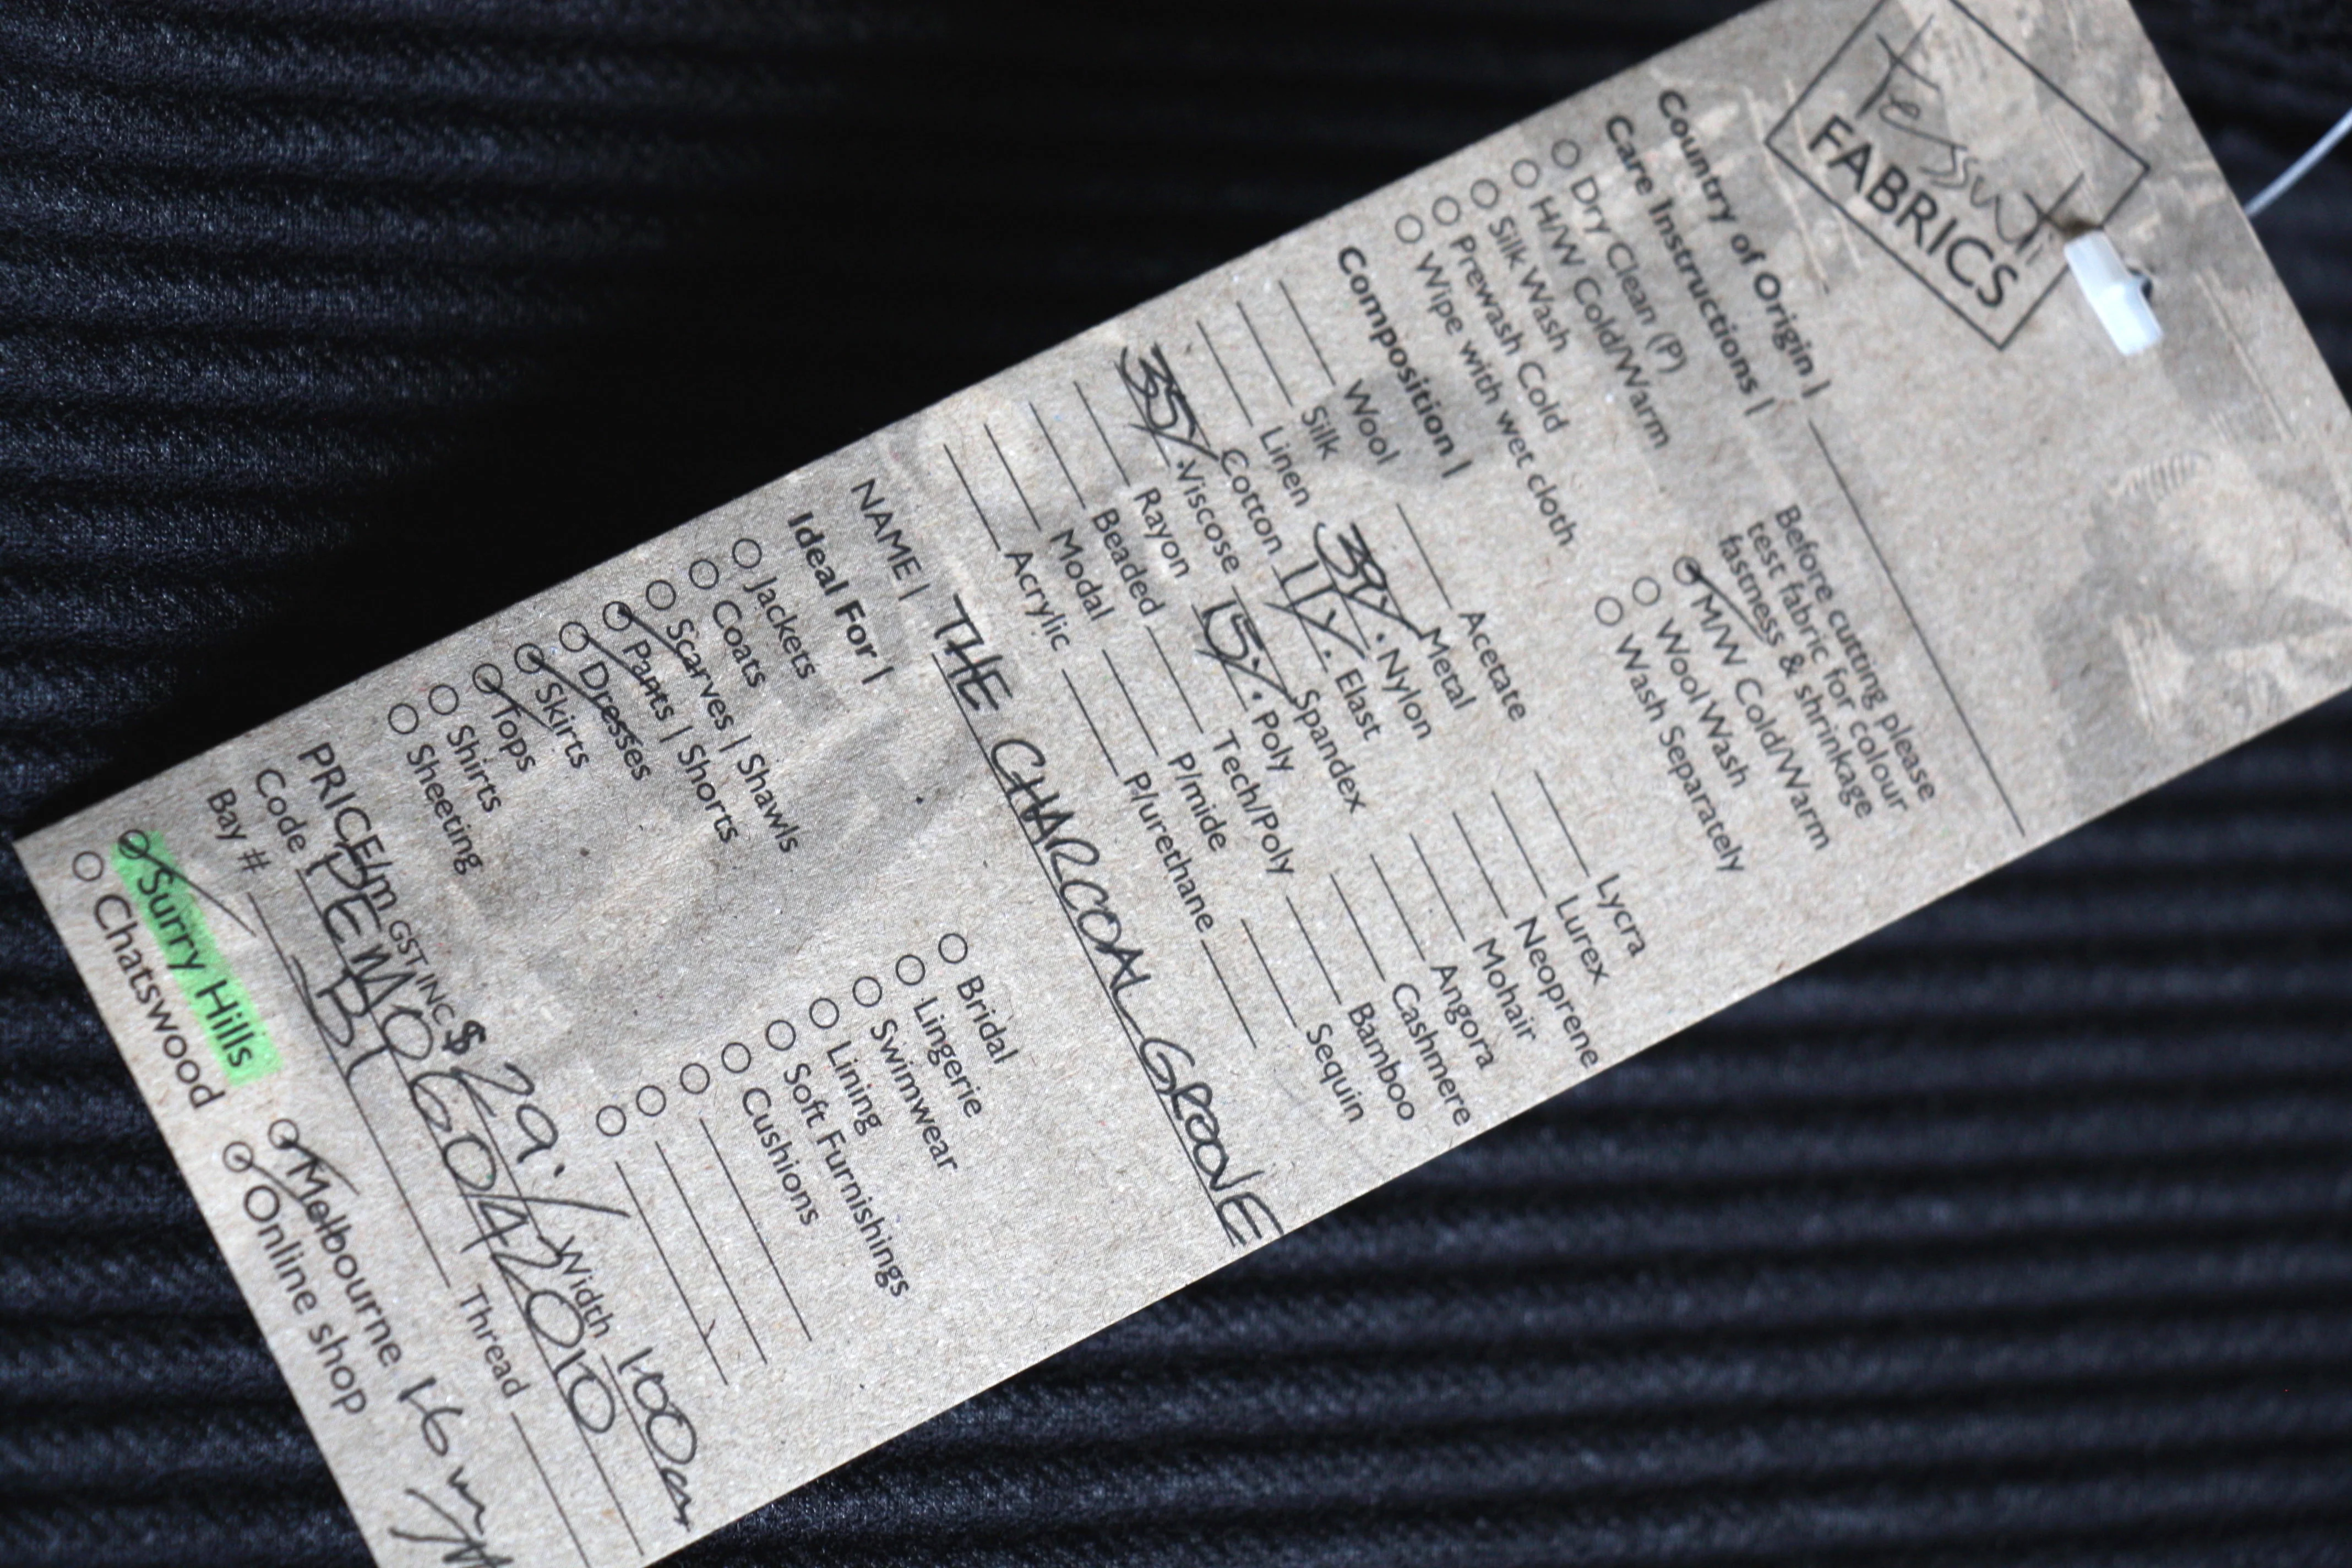 tessuti
FABRICS
Country of Origin |
Care Instructions |
Dry Clean (P)
H/W Cold/Warm
Silk Wash
Prewash Cold
Wipe with wet cloth
Before cutting please
test fabric for colour
fastness & shrinkage
M/W Cold/Warm
Wool Wash
Wash Separately
Composition |
Wool
Silk
Linen
Cotton
35% Viscose
Rayon
Beaded
Modal
Acrylic
Acetate
Metal
39% Nylon
11% Elast
Spandex
15% Poly
Tech/Poly
P/mide
P/urethane
Lycra
Lurex
Neoprene
Mohair
Angora
Cashmere
Bamboo
Sequin
NAME | THE CHARCOAL GROOVE
Ideal For |
Jackets
Coats
Scarves | Shawls
Pants | Shorts
Dresses
Skirts
Tops
Shirts
Sheeting
Bridal
Lingerie
Swimwear
Lining
Soft Furnishings
Cushions
PRICE/m GST INC $29.- Width 100cm
Code PEM06042010
Bay # B1 Thread
Surry Hills Melbourne 1.6m
Chatswood Online shop